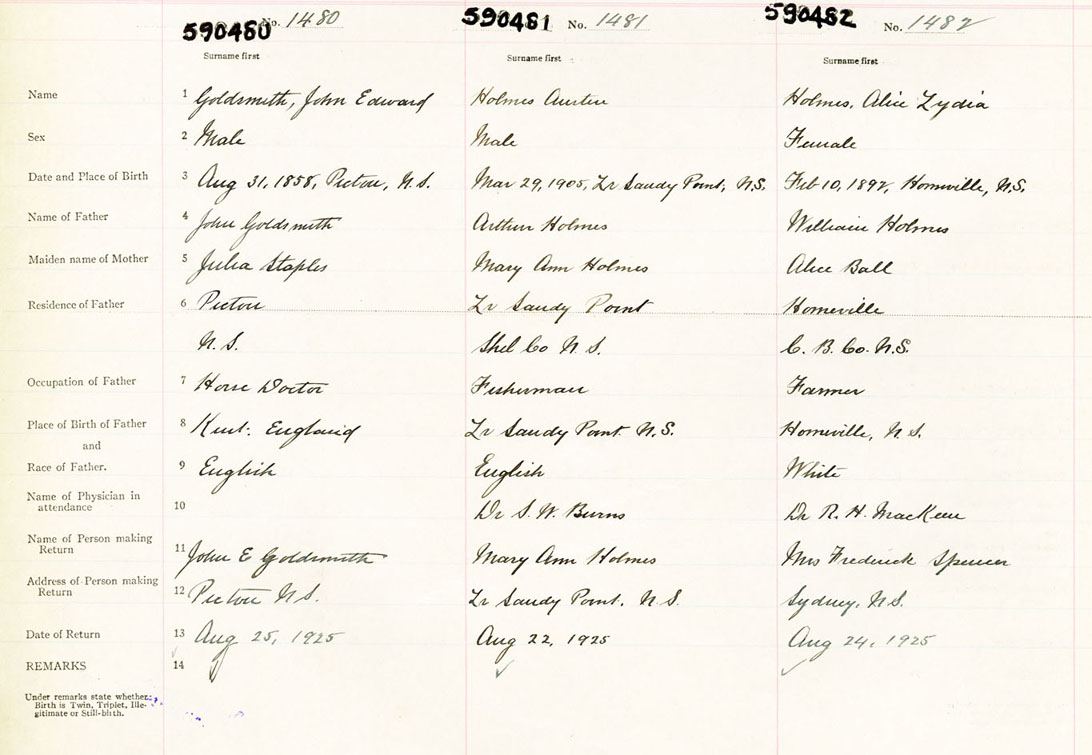 590480 No. 1480 590481 No. 1481 590482 No. 1482
Surname first Surname first Surname first
Name 1 Goldsmith, John Edward Holmes Austin Holmes, Alice Lydia
Sex 2 Male Male Female
Date and Place of Birth 3 Aug 31, 1858, Pictou, N.S. Mar 29, 1905, Lr Sandy Point, N.S. Feb 10, 1892, Homeville, N.S.
Name of Father 4 John Goldsmith Arthur Holmes William Holmes
Maiden name of Mother 5 Julia Staples Mary Ann Holmes Alice Ball
Residence of Father 6 Pictou Lr Sandy Point Homeville
N.S. Shel Co N.S. C. B. Co. N.S.
Occupation of Father 7 Horse Doctor Fisherman Farmer
Place of Birth of Father 8 Kent. England Lr Sandy Point N.S. Homeville, N.S.
and
Race of Father. 9 English English White
Name of Physician in
attendance 10 Dr S. W. Burns Dr R. H. MacKeen
Name of Person making
Return 11 John E Goldsmith Mary Ann Holmes Mrs Frederick Spencer
Address of Person making
Return 12 Pictou N.S. Lr Sandy Point, N.S. Sydney, N.S.
Date of Return 13 Aug 25, 1925 Aug 22, 1925 Aug 24, 1925
REMARKS 14
Under remarks state whether
Birth is Twin, Triplet, Ille-
gitimate or Still-birth.